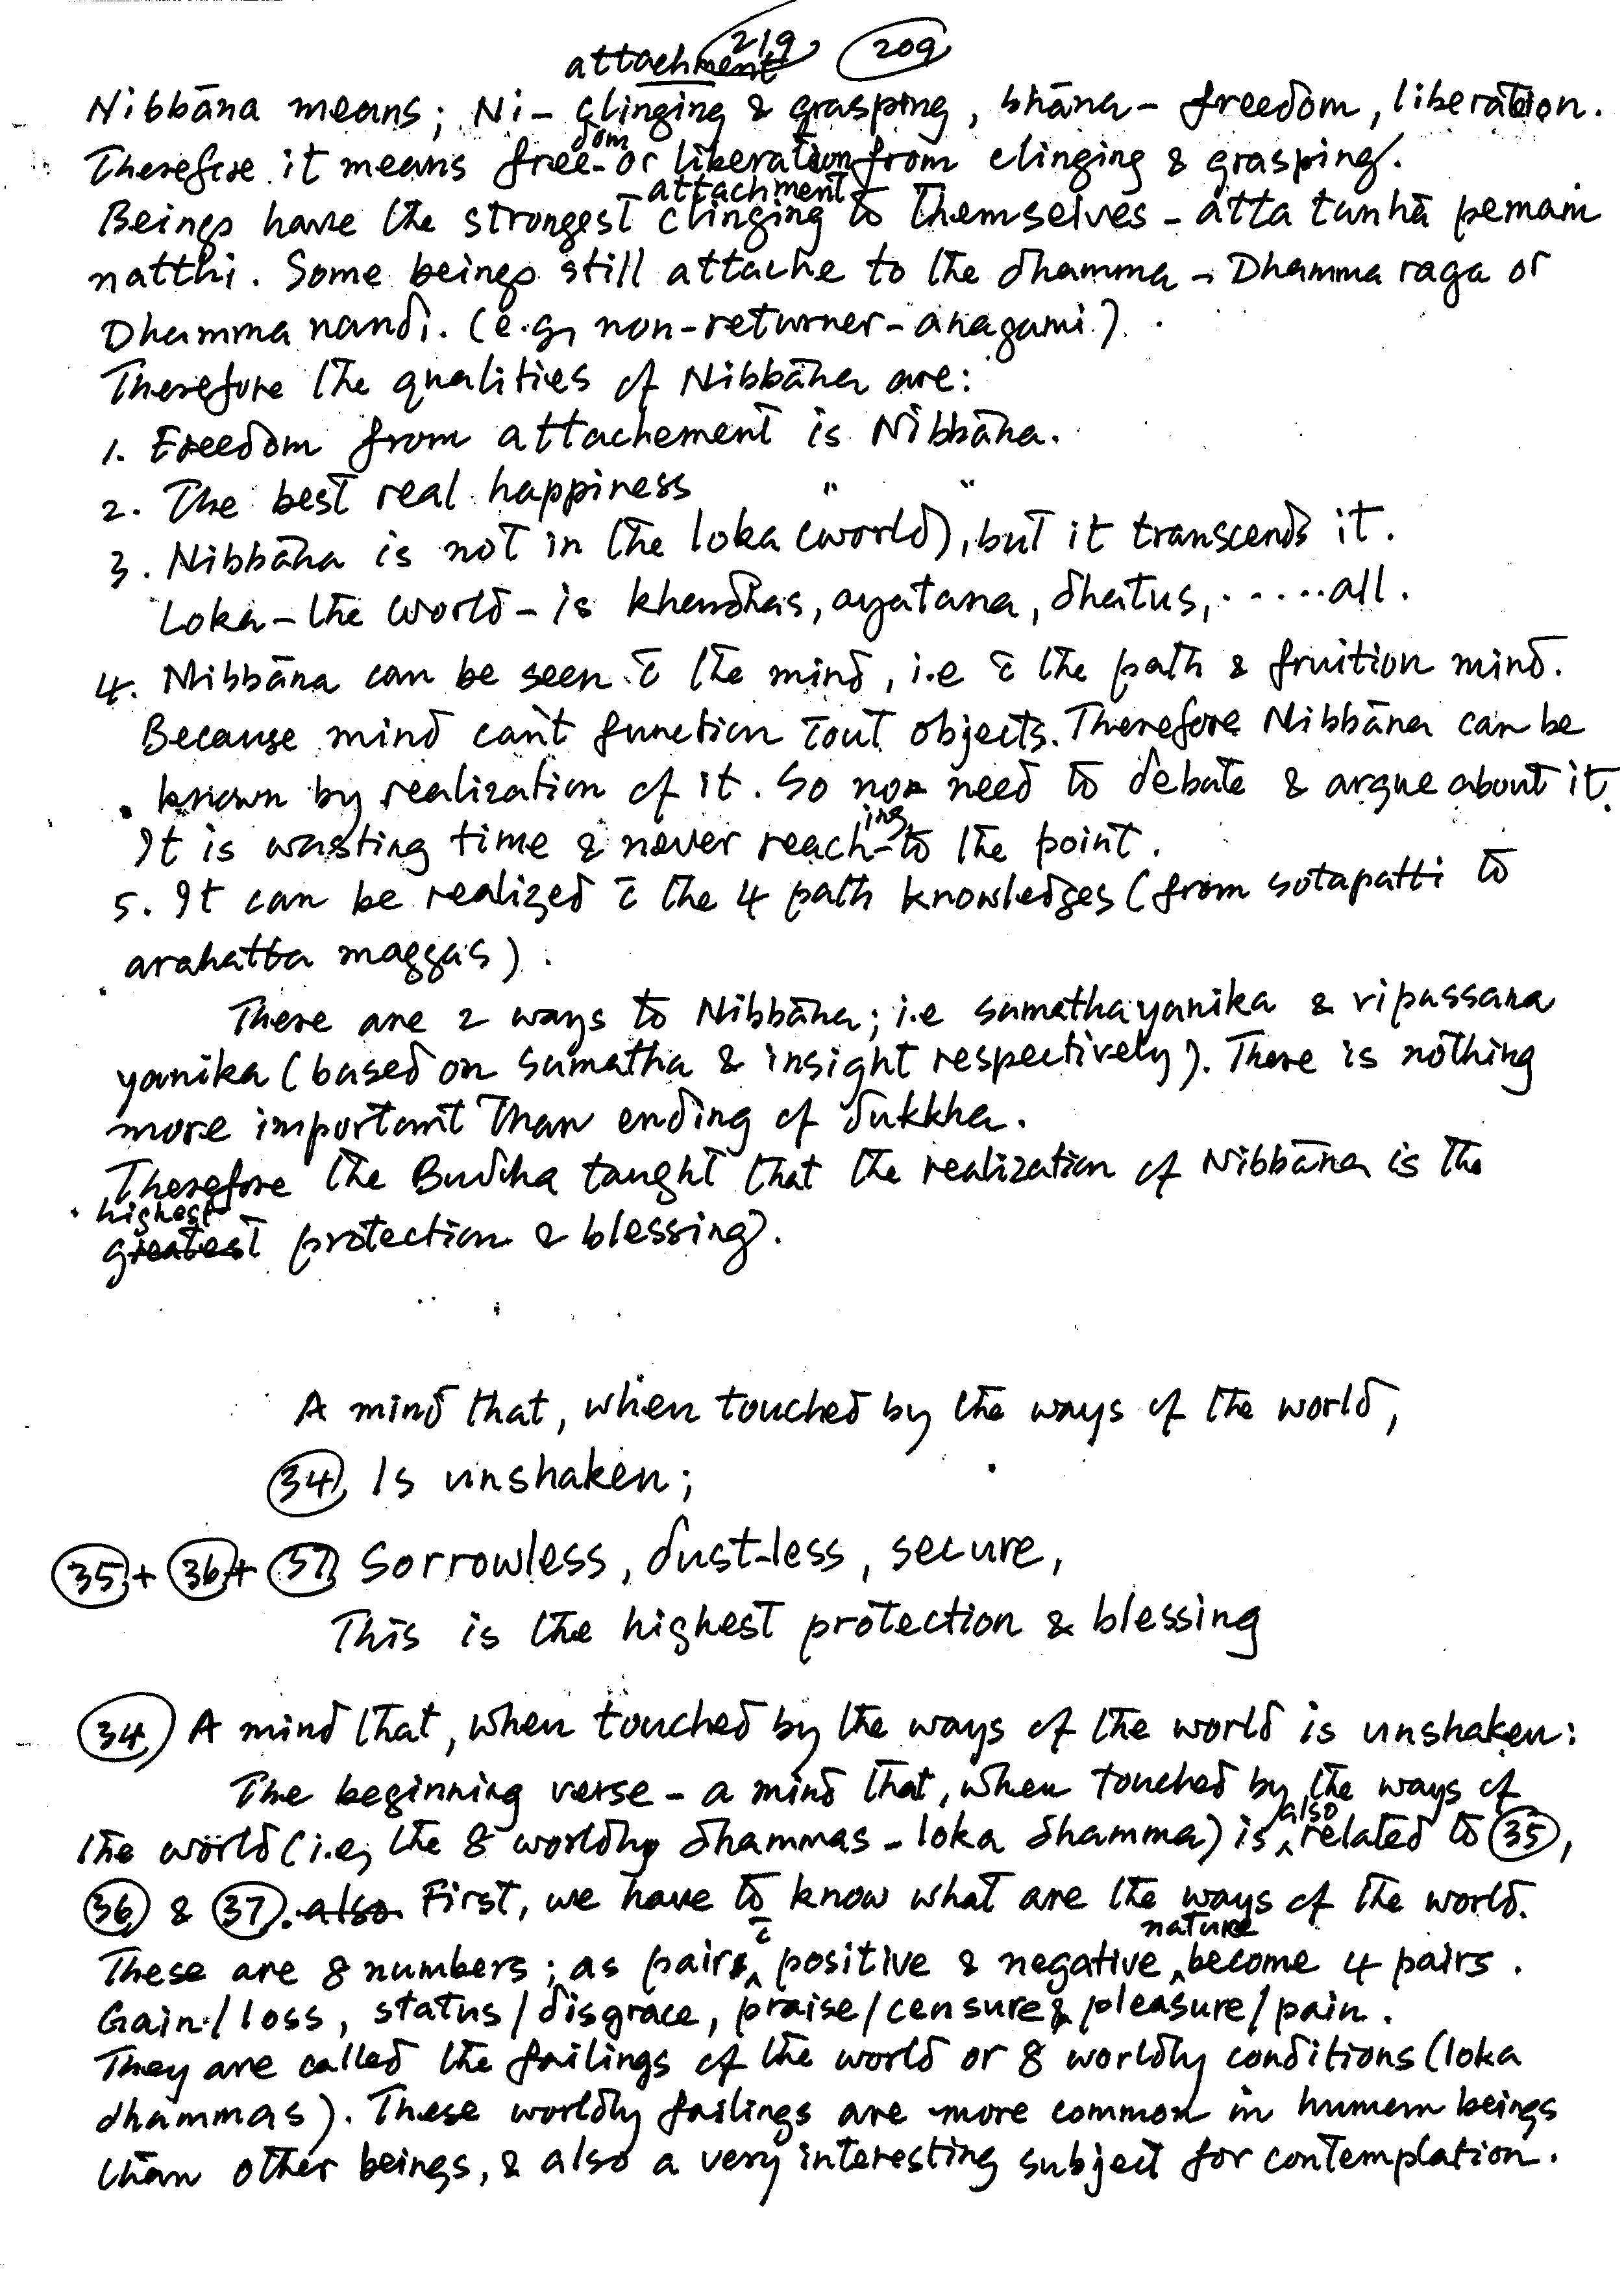 219 209
attachment
Nibbāna means; Ni- clinging & grasping, bhāna- freedom, liberation.
Therefore it means free-dom or liberation from clinging & grasping.
Beings have the strongest -attachment clinging to themselves - atta tanhā pemam
natthi. Some beings still attache to the dhamma - Dhamma raga or
Dhamma nandi. (e.g, non-returner-anagami).
Therefore the qualities of Nibbāna are:
1. Freedom from attachement is Nibbāna.
2. The best real happiness " "
3. Nibbāna is not in the loka (world), but it transcends it.
Loka-the world- is khandhas, ayatana, dhatus, .....all.
4. Nibbāna can be seen c̄ the mind, i.e c̄ the path & fruition mind.
Because mind can't function c̄out objects. Therefore Nibbāna can be
known by realization of it. So no need to debate & argue about it.
It is wasting time & never reach-ing to the point.
5. It can be realized c̄ the 4 path knowledges (from sotapatti to
arahatta maggas).
There are 2 ways to Nibbāna; i.e samathayanika & vipassana
yanika (based on samatha & insight respectively). There is nothing
more important than ending of dukkha.
Therefore the Buddha taught that the realization of Nibbāna is the
highest
greatest protection & blessing.
A mind that, when touched by the ways of the world,
34 Is unshaken;
35 + 36 + 37 Sorrowless, dust-less, secure,
This is the highest protection & blessing
34 A mind that, when touched by the ways of the world is unshaken:
The beginning verse - a mind that, when touched by the ways of
the world (i.e, the 8 worldly dhammas - loka dhamma) is also related to 35,
36 & 37. also First, we have to know what are the ways of the world.
These are 8 numbers; as pairs c̄ positive & negative nature become 4 pairs.
Gain/loss, status/disgrace, praise/censure & pleasure/pain.
They are called the failings of the world or 8 worldly conditions (loka
dhammas). These worldly failings are more common in human beings
than other beings, & also a very interesting subject for contemplation.